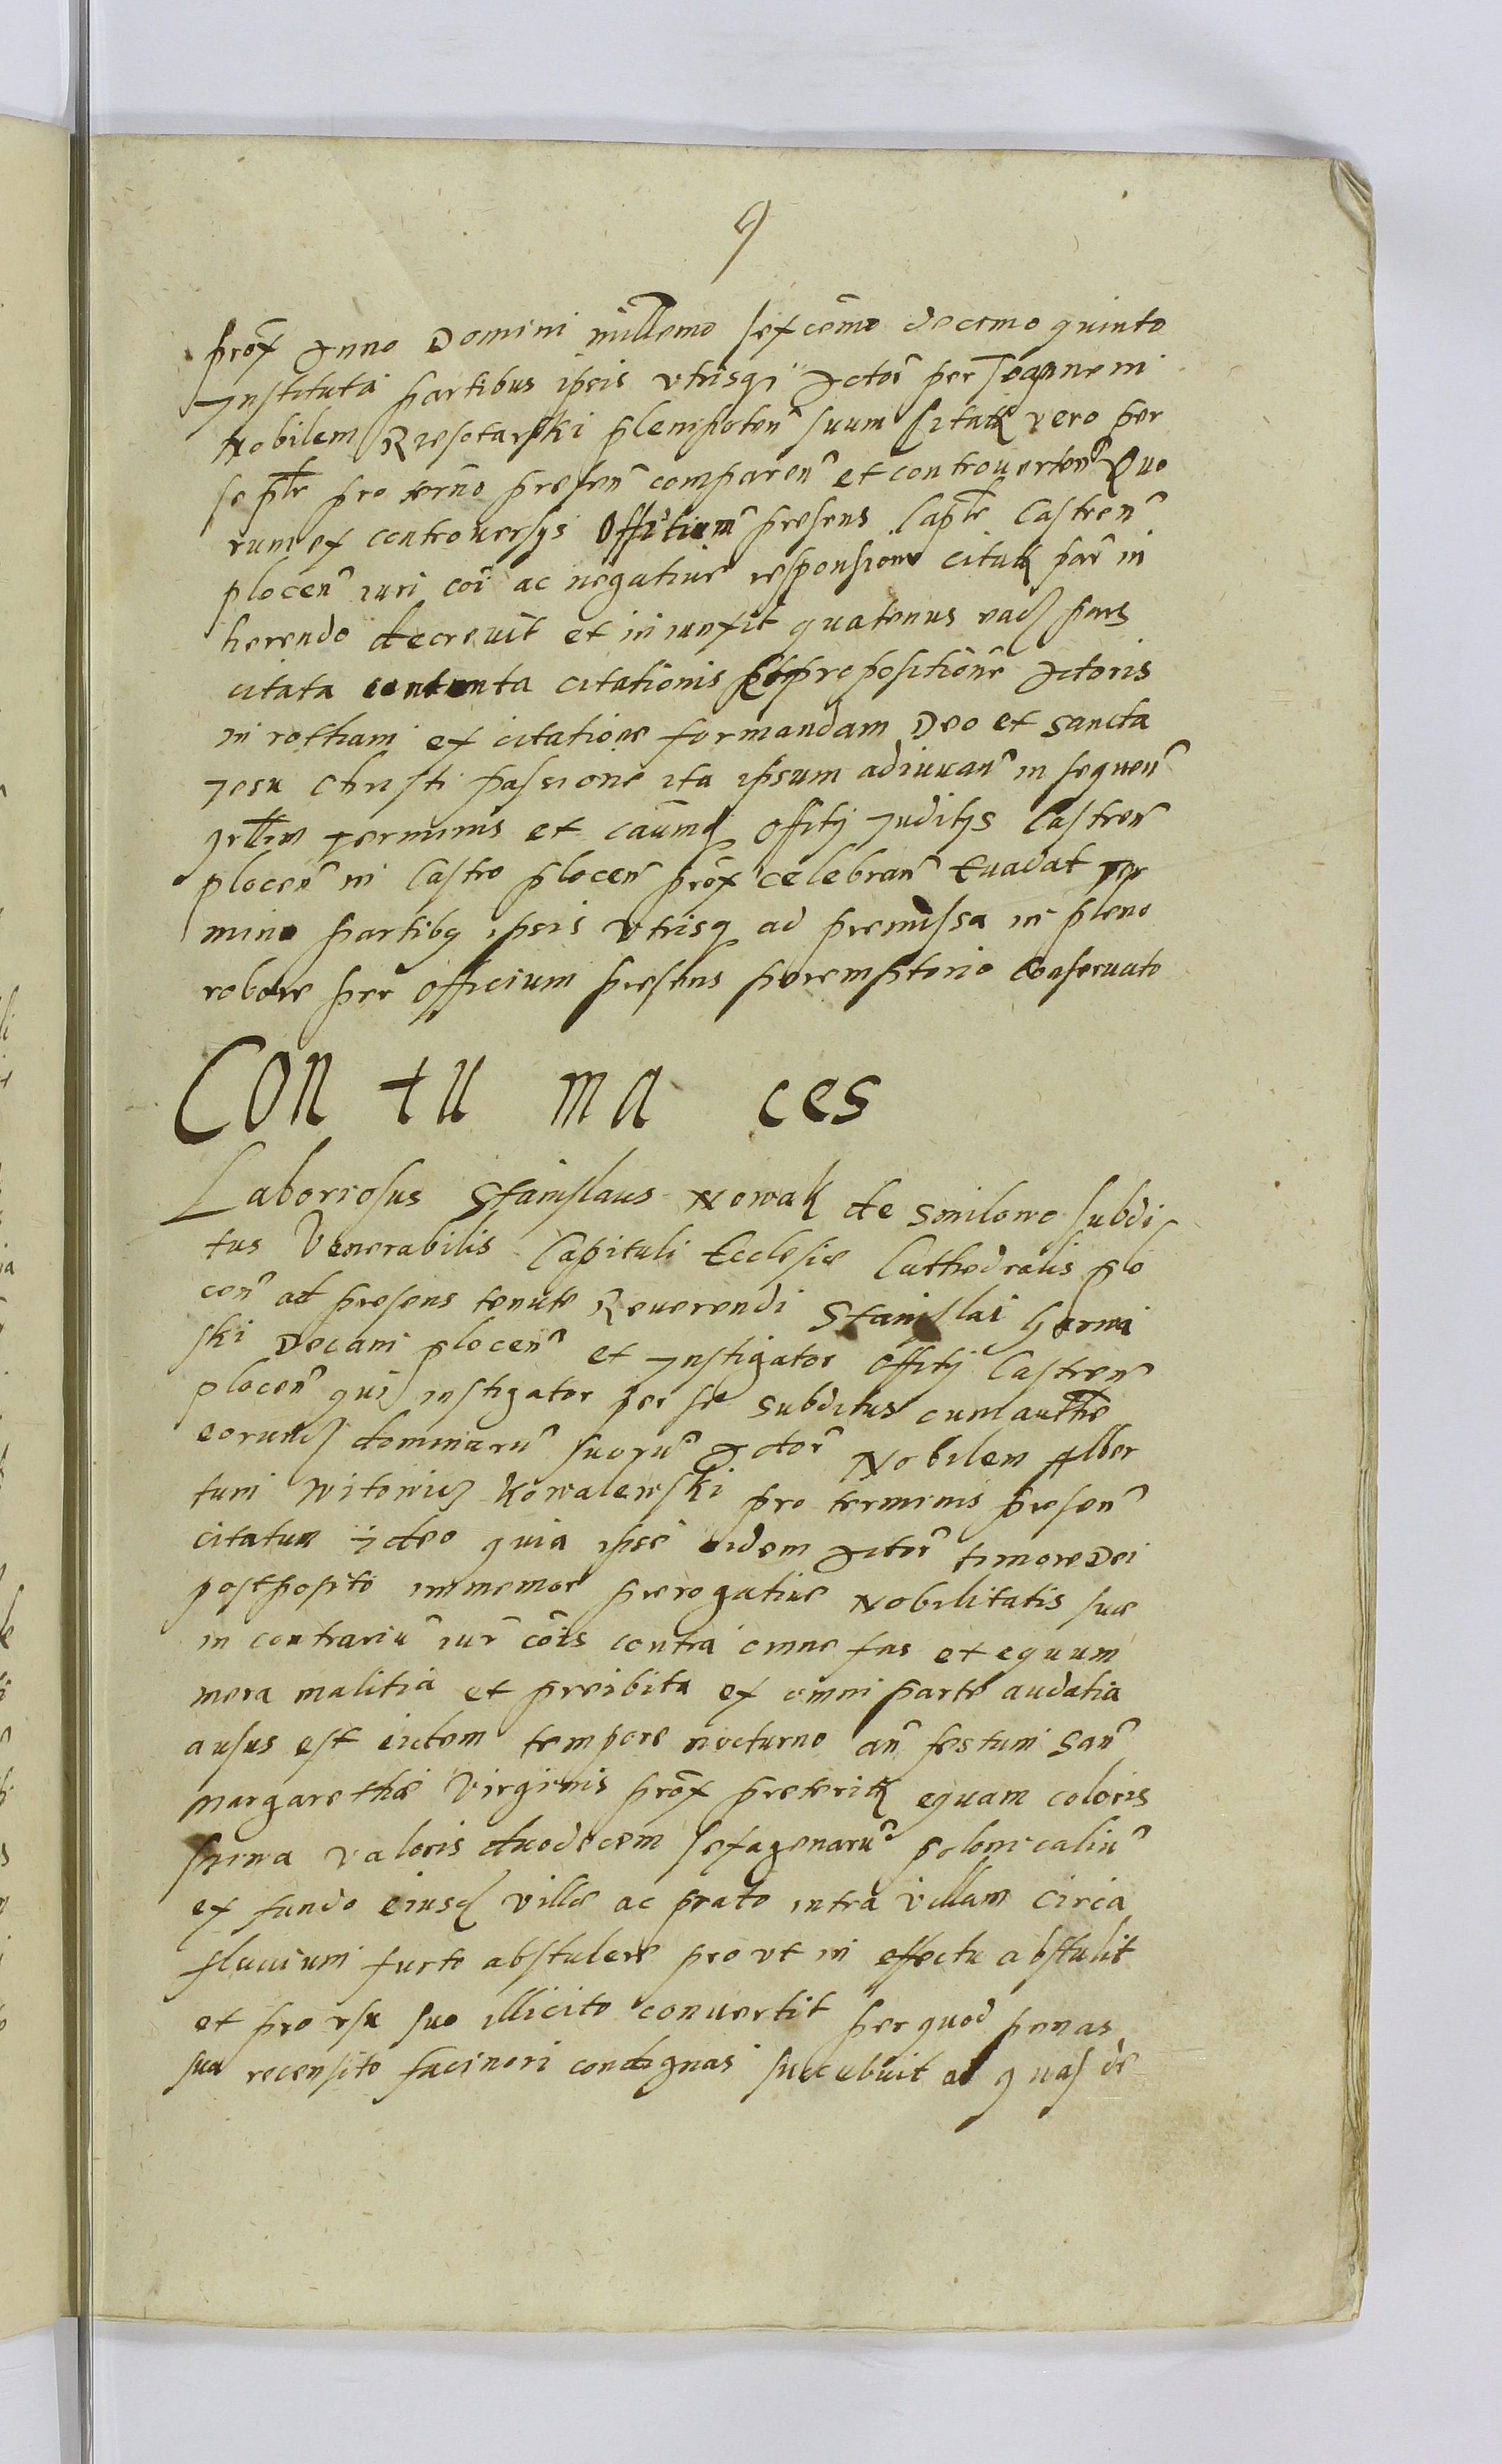 9
prox Anno Domini millemo sexcēmo decimo quinto
Instituta partibus ipsis vtrisq; Actor per Joannem
Nobilem Rzesotarski plenipoten suum Citatu vero per
se ple pro termo presen comparen et controuerten Quo
rum ex controuersys Offitium presens Caple Castren
plocen iuri coī ac negatiue responsione citati par in
herendo decreuit et iniunxit quatenus eadem pars
citata contenta citationis propositione Actoris
in rottham ex citatione formandam Deo et Sancta
Jesu Christi passione ita ipsum adiuuan in sequen
grlim terminis et causarum offity Juditys Castren
plocen in Castro plocen prox celebran Euadat ter
mino partibq ipsis vtrisq ad premissa in pleno
robore per officium presens peremptorio conseruato
Con tu ma ces
Laboriosus Stanislaus Nowak de Smilowo subdi
tus Venerabilis Capituli Ecclesiæ Cathedralis plo
cen ad presens tenute Reuerendi Stanislai
ski Decani plocen et Instigator offity Castren
plocen qui instigator per se subditus cum authe
eorund dominoru suoru Actor Nobilem Alber
tum Witowicz Kowalewski pro terminis presen
citatum ideo quia ipse eidem Actor timore Dei
postposito immemor prerogatiue Nobilitatis suæ
in contrariu iur cōis contra omne fas et equum
mera malitia et preibita ex omni parte audatia
ausus est eidem tempore nocturno an festum San
Margarethæ Virginis prox preteriti equam coloris
valoris duodecem sexagenaru polonicaliu
ex fundo eiusq villæ ac prato intra villam circa
fluuium furto abstulere pro vt in effectu abstulit
et pro vsu suo illicito conuertit per quod penas
sua recensito facinori condignas succubuit ad quas de